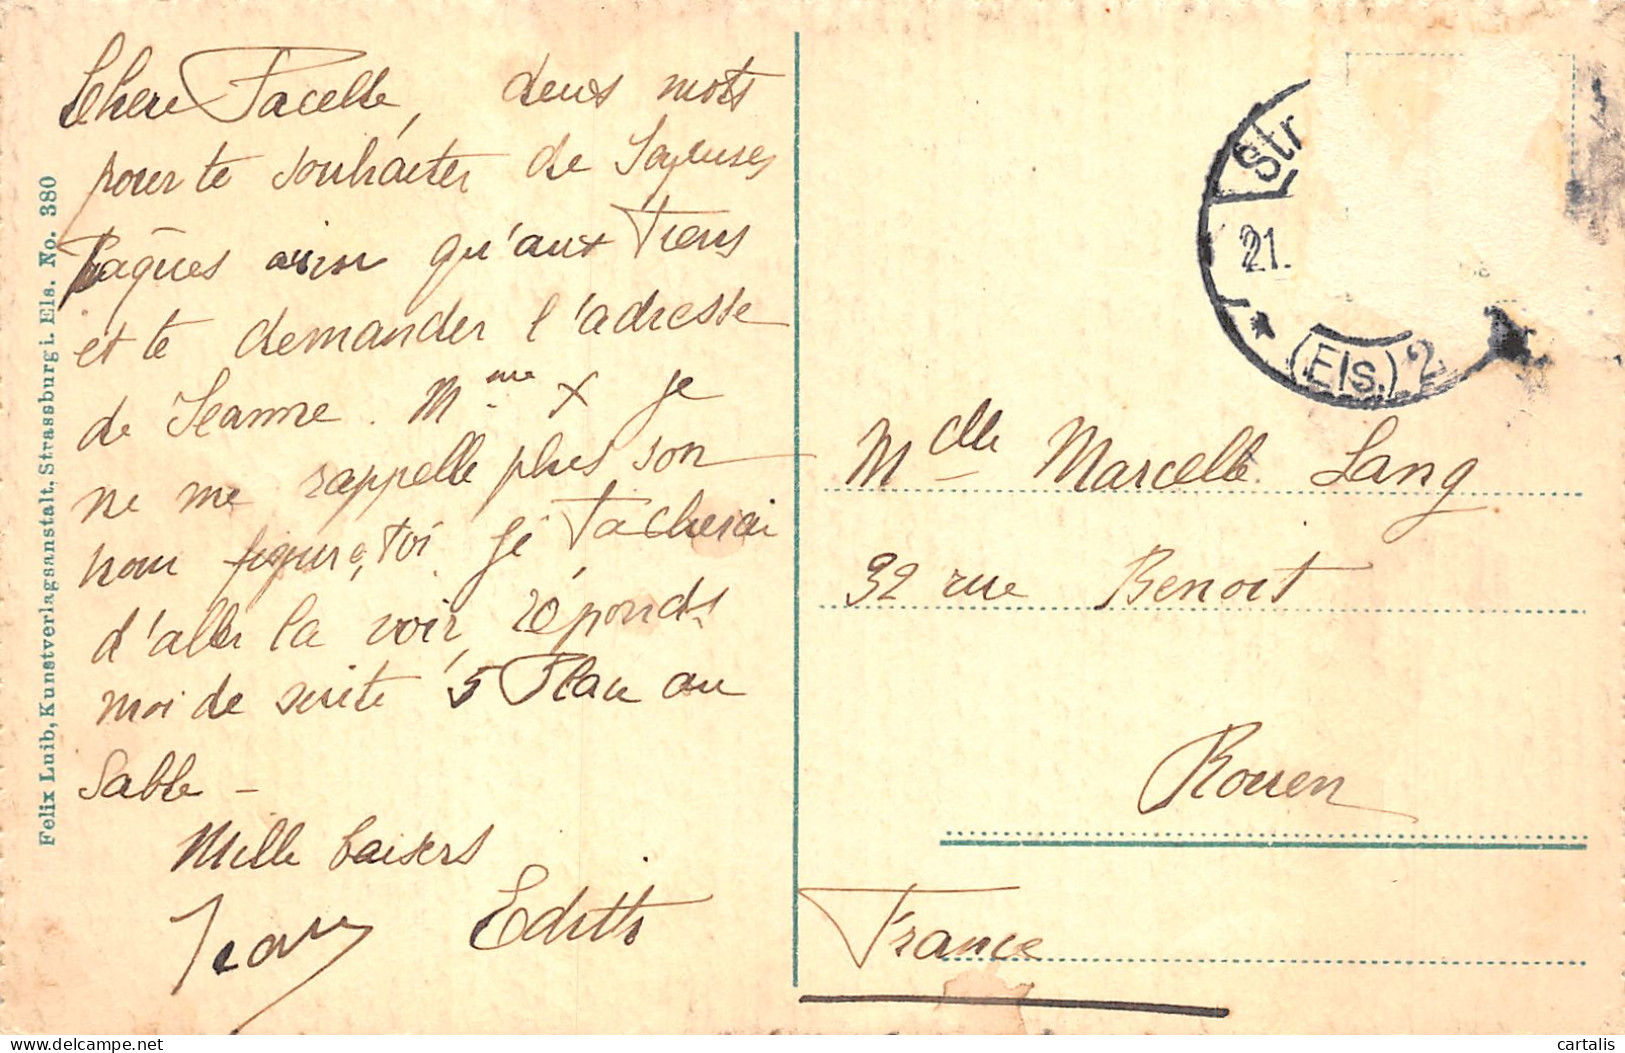 Chère Pacelle, deux mots
pour te souhaiter de Joyeuses
Pâques ainsi qu'aux Tiens
et te demander l'adresse
de Jeanne. Mme X je
ne me rappelle plus son
nom figure, toi je tacherai
d'aller la voir, réponds-
moi de suite 5 Place au
Sable -
Mille baisers
Edith
Felix Luib, Kunstverlagsanstalt, Strassburg i. Els. No. 380
Str
21.
(Els.) 2
Mdlle Marcelle Lang
32 rue Benoit
Rouen
France
cartalis
delcampe.net